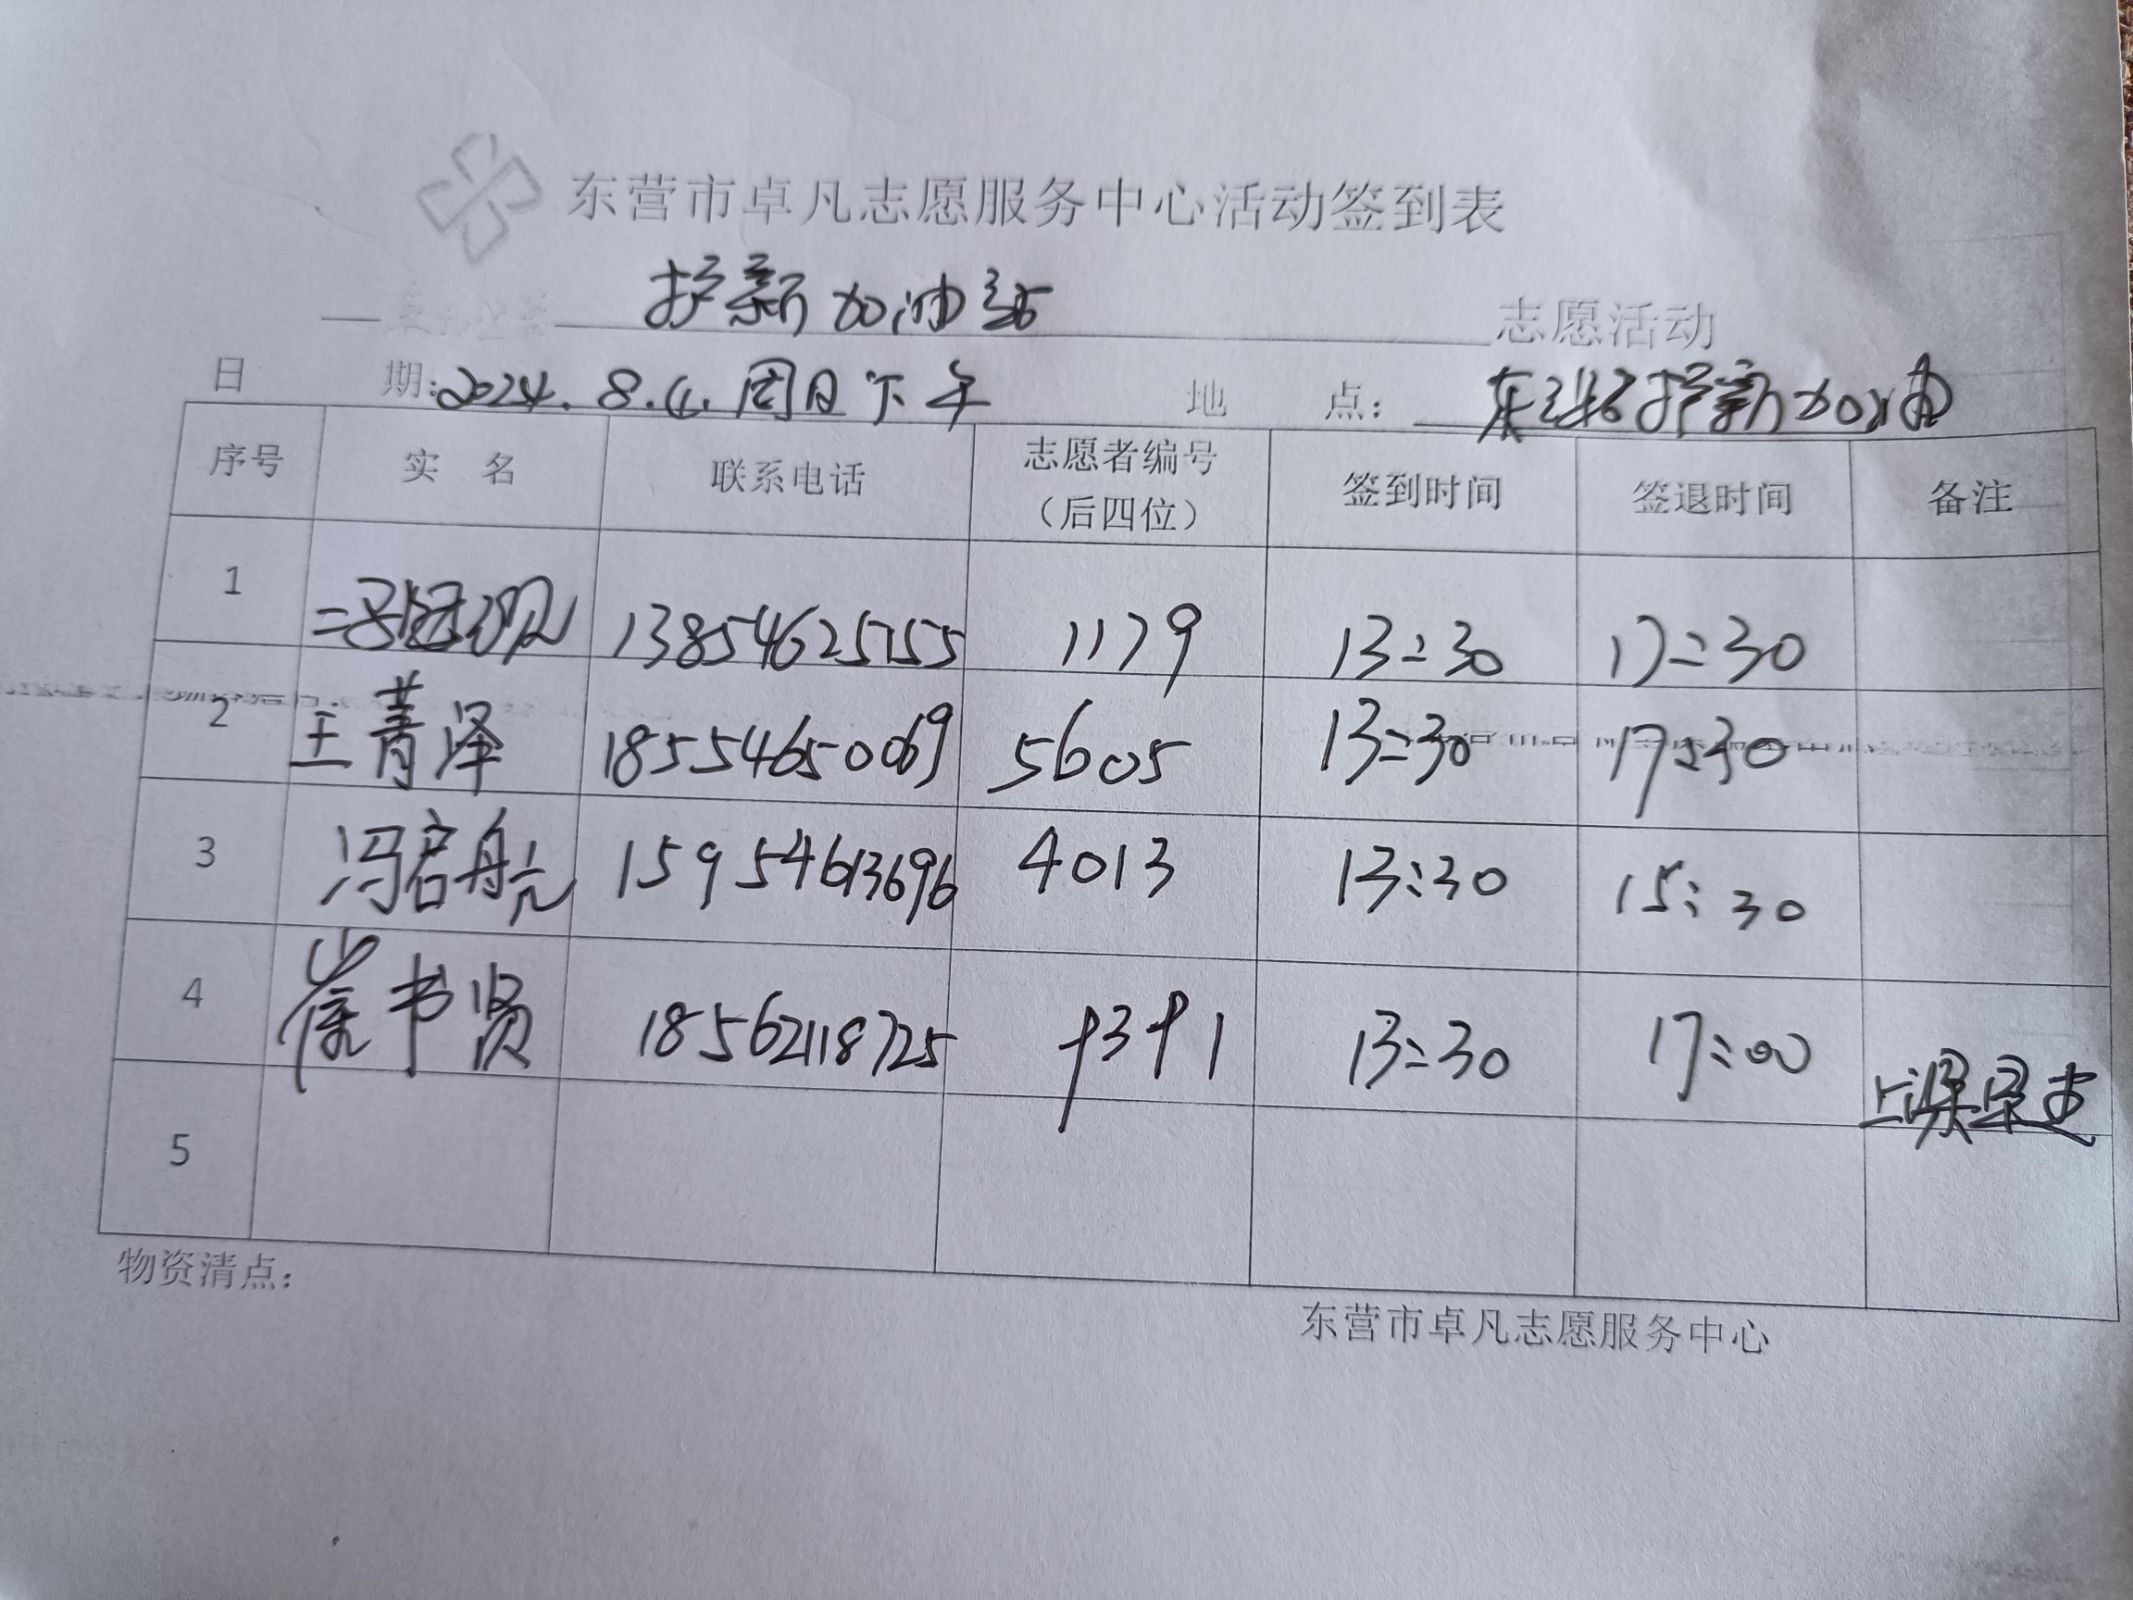 东营市卓凡志愿服务中心活动签到表
护新加油站 志愿活动
日 期:2024.8.4.周日下午 地 点: 护新加油
序号 实 名 联系电话 志愿者编号（后四位） 签到时间 签退时间 备注
1 13854625755 1179 13:30 17:30
2 王菁泽 18554650069 5605 13:30 17:30
3 冯启航 15954613696 4013 13:30 15:30
4 崔书贤 18562118725 9391 13:30 17:00 上课早走
5
物资清点：
东营市卓凡志愿服务中心